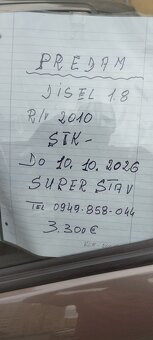 PREDAM
DISEL 1.8
R/V 2010
STK -
DO 10.10.2026
SUPER STAV
TEL 0949-858-044
3.300€